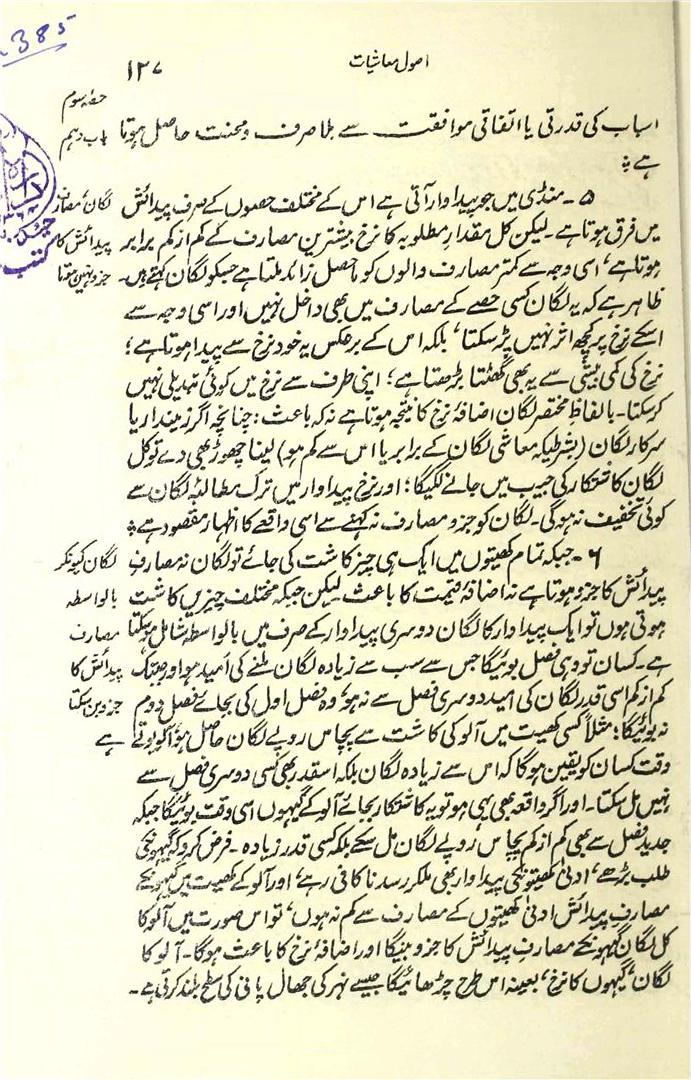 385
اصول معاشیات
۱۲۷
حصۂ سوم
باب دہم
اسباب کی قدرتی یا اتفاقی موافقت سے بلا صرف و محنت حاصل ہوتا
ہے ؞
لگان، مصارف
پیدائش کا
جزو نہیں ہوتا
۵ - منڈی میں جو پیداوار آتی ہے اس کے مختلف حصوں کے صرف پیدائش
میں فرق ہوتا ہے - لیکن کل مقدار مطلوبہ کا نرخ بیشترین مصارف کے کم از کم برابر
ہوتا ہے، اسی وجہ سے کمتر مصارف والوں کو ماحصل زائد ملتا ہے جسکو لگان کہتے ہیں-
ظاہر ہے کہ یہ لگان کسی حصے کے مصارف میں بھی داخل نہیں اور اسی وجہ سے
اسکے نرخ پر کچھ اثر نہیں پڑ سکتا، بلکہ اس کے برعکس یہ خود نرخ سے پیدا ہوتا ہے؛
نرخ کی کمی بیشی سے یہ بھی گھٹتا بڑھتا ہے؛ اپنی طرف سے نرخ میں کوئی تبدیلی نہیں
کر سکتا - بالفاظِ مختصر لگان اضافۂ نرخ کا نتیجہ ہوتا ہے نہ کہ باعث: چنانچہ اگر زمیندار یا
سرکار لگان (بشرطیکہ معاشی لگان کے برابر یا اس سے کم ہو) لینا چھوڑ بھی دے تو کل
لگان کاشتکار کی جیب میں جانے لگیگا؛ اور نرخ پیداوار میں ترک مطالبۂ لگان سے
کوئی تخفیف نہ ہوگی - لگان کو جزو مصارف نہ کہنے سے اسی واقعے کا اظہار مقصود ہے ؞
لگان کیونکر
بالواسطہ
مصارف
پیدائش کا
جزو بن سکتا
ہے
۶ - جبکہ تمام کھیتوں میں ایک ہی چیز کاشت کی جائے تو لگان نہ مصارفِ
پیدائش کا جزو ہوتا ہے نہ اضافۂ قیمت کا باعث لیکن جبکہ مختلف چیزیں کاشت
ہوتی ہوں تو ایک پیداوار کا لگان دوسری پیداوار کے صرف میں بالواسطہ شامل ہو سکتا
ہے - کسان تو وہی فصل بوئیگا جس سے سب سے زیادہ لگان ملنے کی اُمید ہو اور جبتک
کم از کم اسی قدر لگان کی اُمید دوسری فصل سے نہ ہو، وہ فصل اول کی بجائے فصل دوم
نہ بوئیگا؛ مثلاً کسی کھیت میں آلو کی کاشت سے پچاس روپے لگان حاصل ہوا گو بوتے
وقت کسان کو یقین ہوگا کہ اس سے زیادہ لگان بلکہ اسقدر بھی کسی دوسری فصل سے
نہیں مل سکتا - اور اگر واقعہ بھی یہی ہو تو یہ کاشتکار بجائے آلو کے گیہوں اسی وقت بوئیگا جبکہ
جدید فصل سے بھی کم از کم پچاس روپے لگان مل سکے بلکہ کسی قدر زیادہ - فرض کرو کہ گیہوں کی
طلب بڑھے، ادنیٰ کھیتوں کی پیداوار بھی ملکر رسد ناکافی رہے، اور آلو کے کھیت میں گیہوں کے
مصارفِ پیدائش ادنیٰ کھیتوں کے مصارف سے کم نہ ہوں، تو اس صورت میں آلو کا
کل لگان گیہوں کے مصارف پیدائش کا جزو بنیگا اور اضافۂ نرخ کا باعث ہوگا - آلو کا
لگان، گیہوں کا نرخ، بعینہ اس طرح چڑھائیگا جیسے نہر کی جھال پانی کی سطح بلند کرتی ہے -